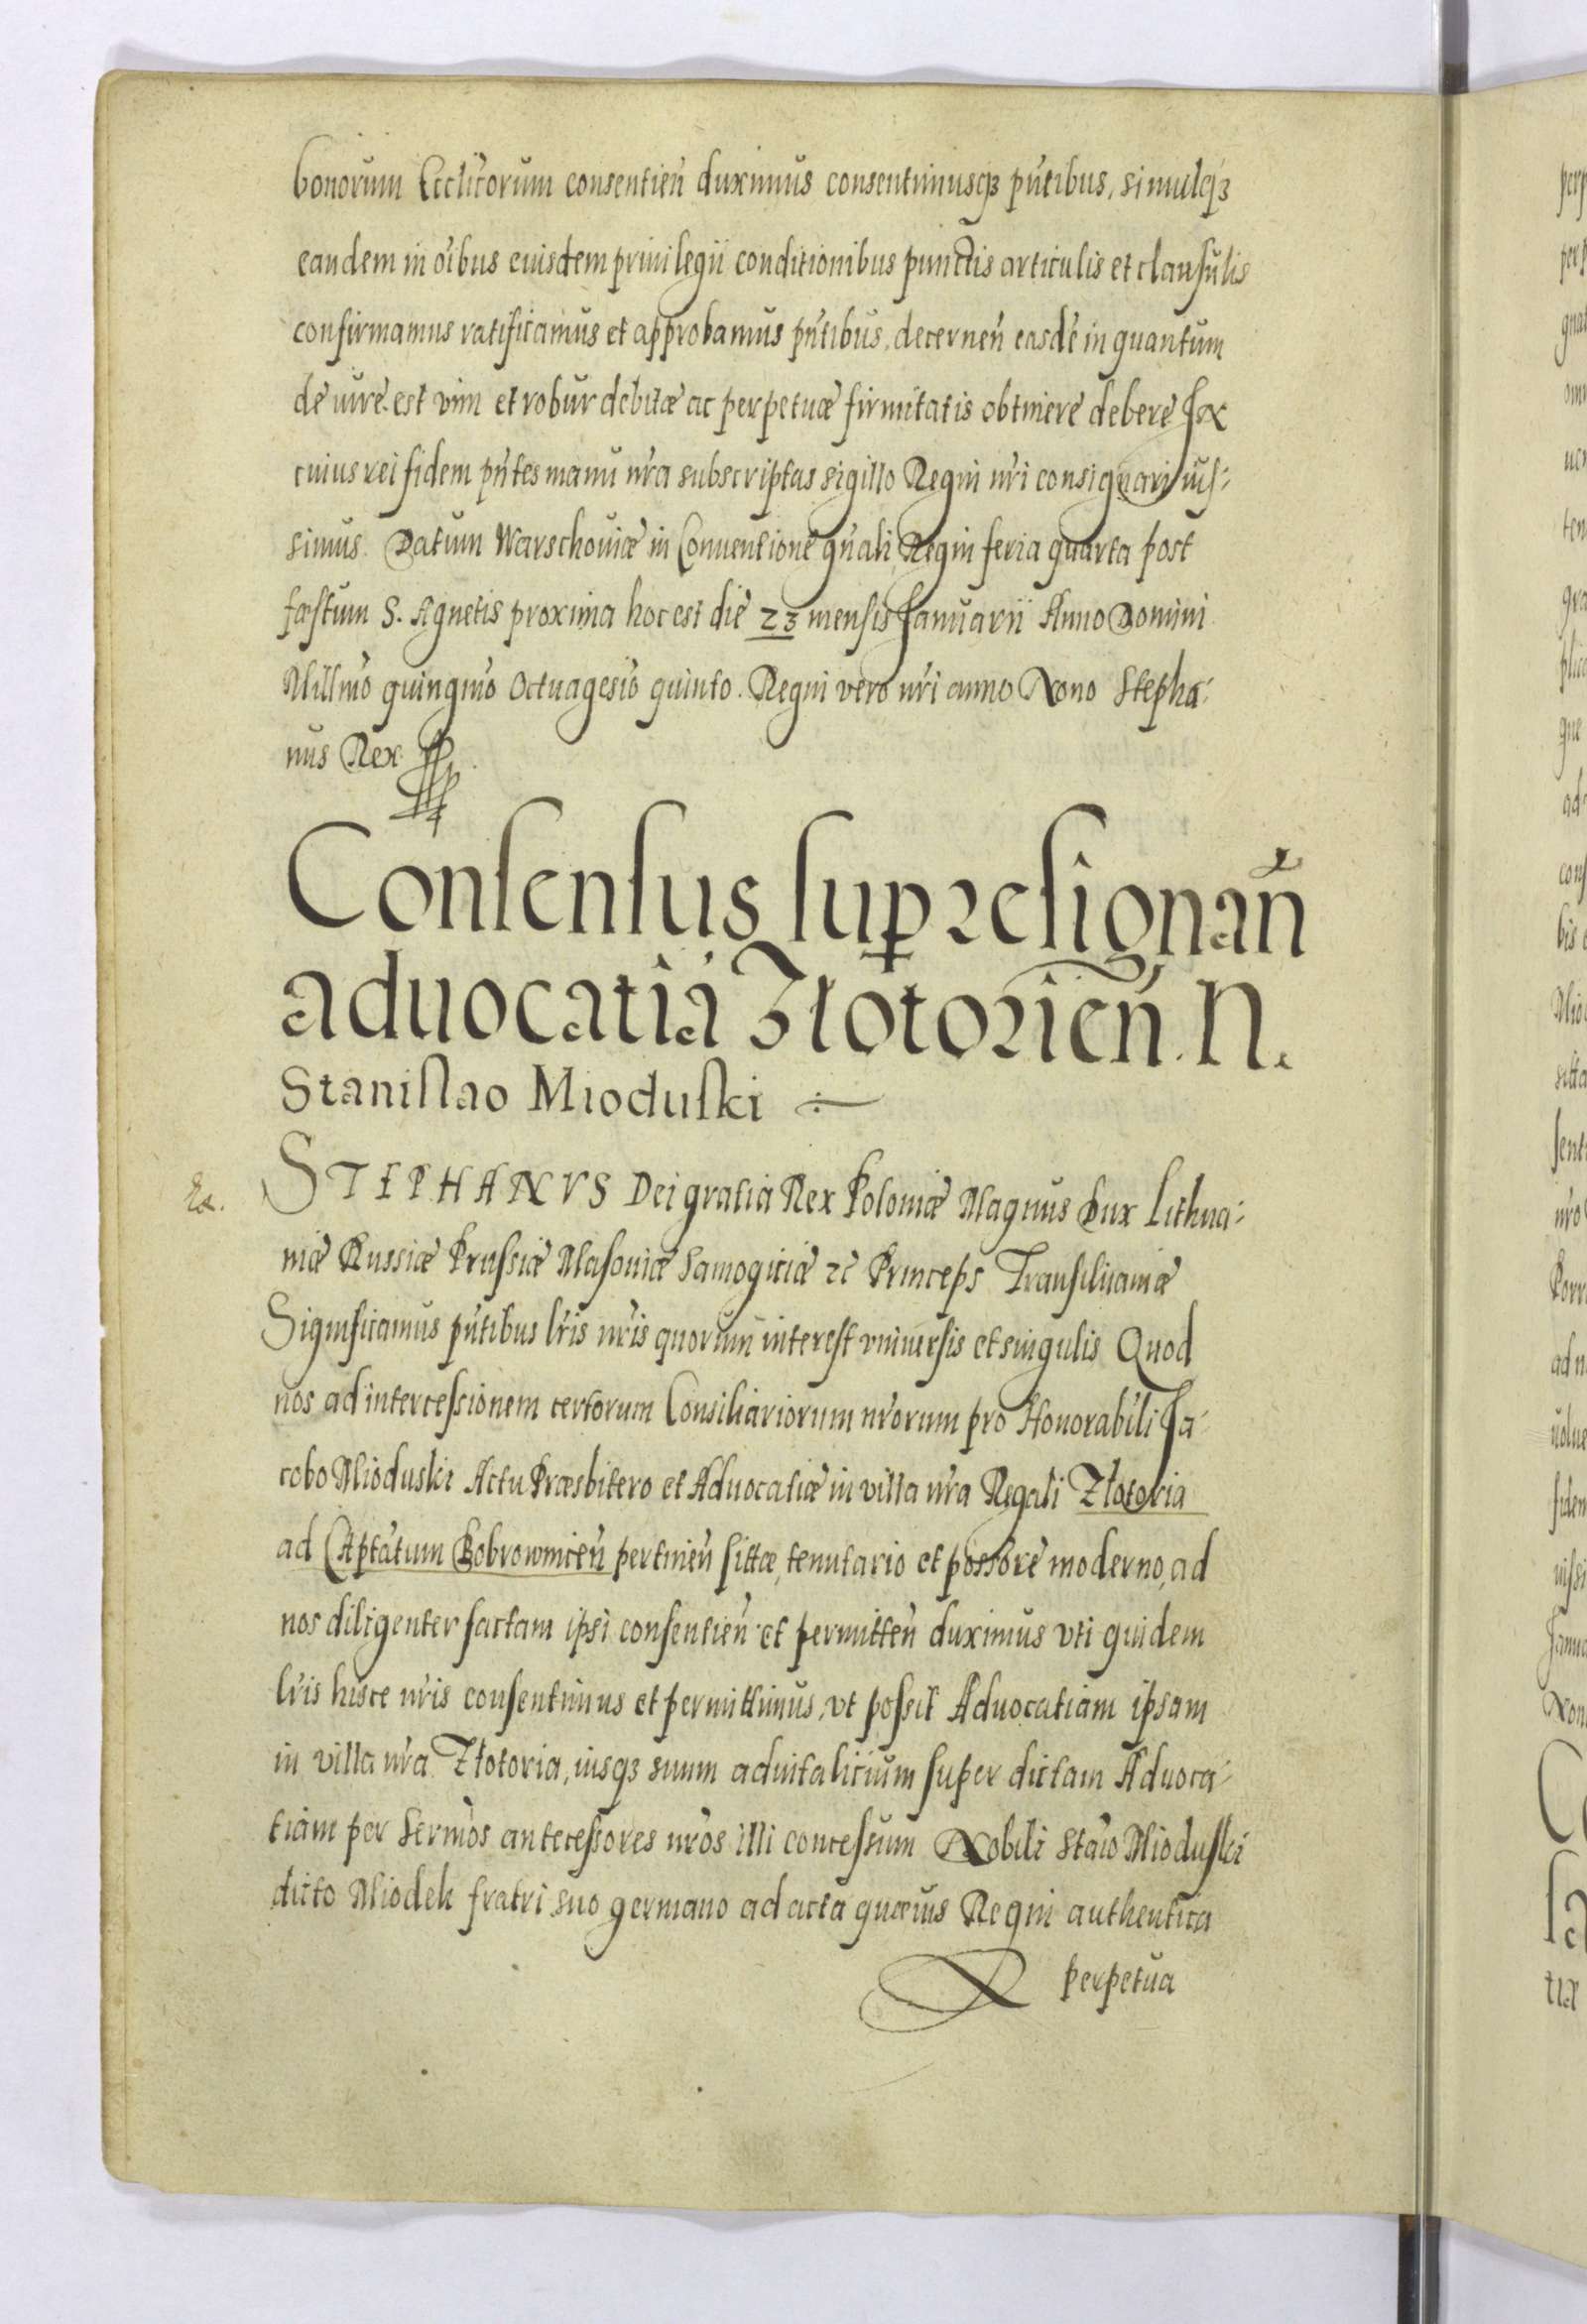 bonorum Ecclicorum consentień duximus consentimusqꝫ pńtibus, simulqꝫ
eandem in oibus eiusdem priuilegii conditionibus punctis articulis et clausulis
confirmamus ratificamus et approbamus pńtibus, decerneń easdē in quantum
de iure est vim et robur debitæ ac perpetuæ firmitatis obtinere debere In
cuius rei fidem pńtes manu nr̃a subscriptas sigillo Regni nr̃i consignari ius-
simus. Datum Warschouiæ in Conuentione gnali Regni feria quarta post
fæstum S. Agnetis proxima hoc est die 23 mensis Januarii Anno Domini
Millmo quingmo Octuagesio quinto. Regni vero nr̃i anno Nono Stepha-
nus Rex
Consensus suꝑ resignań
aduocatia Złotorień. N.
Stanislao Mioduski
Ex.
STEPHANVS Dei gratia Rex Poloniæ Magnus Dux Lithua-
niæ Russiæ Prussiæ Masouiæ Samogitiæ ꝛc Princeps Transiluaniæ
Significamus pńtibus lr̃is nr̃is quorum interest vniuersis et singulis Quod
nos ad intercessionem certorum Consiliariorum nr̃orum pro Honorabili Ja-
cobo Mioduski Actu Præsbitero et Aduocatiæ in villa nr̃a Regali Złotoria
ad Captatum Bobrownicen̄ pertineń sittæ, tenutario et possore moderno, ad
nos diligenter factam ipsi consentień et permitteń duximus vti quidem
lr̃is hisce nr̃is consentimus et permittimus, vt possit Aduocatiam ipsam
in villa nr̃a Złotoria, iusqꝫ suum aduitalicium super dictam Aduoca-
tiam per Sermos antecessores nr̃os illi concessum Nobili Stao Mioduski
dicto Miodek fratri suo germano ad acta quæuis Regni authentica
perpetua